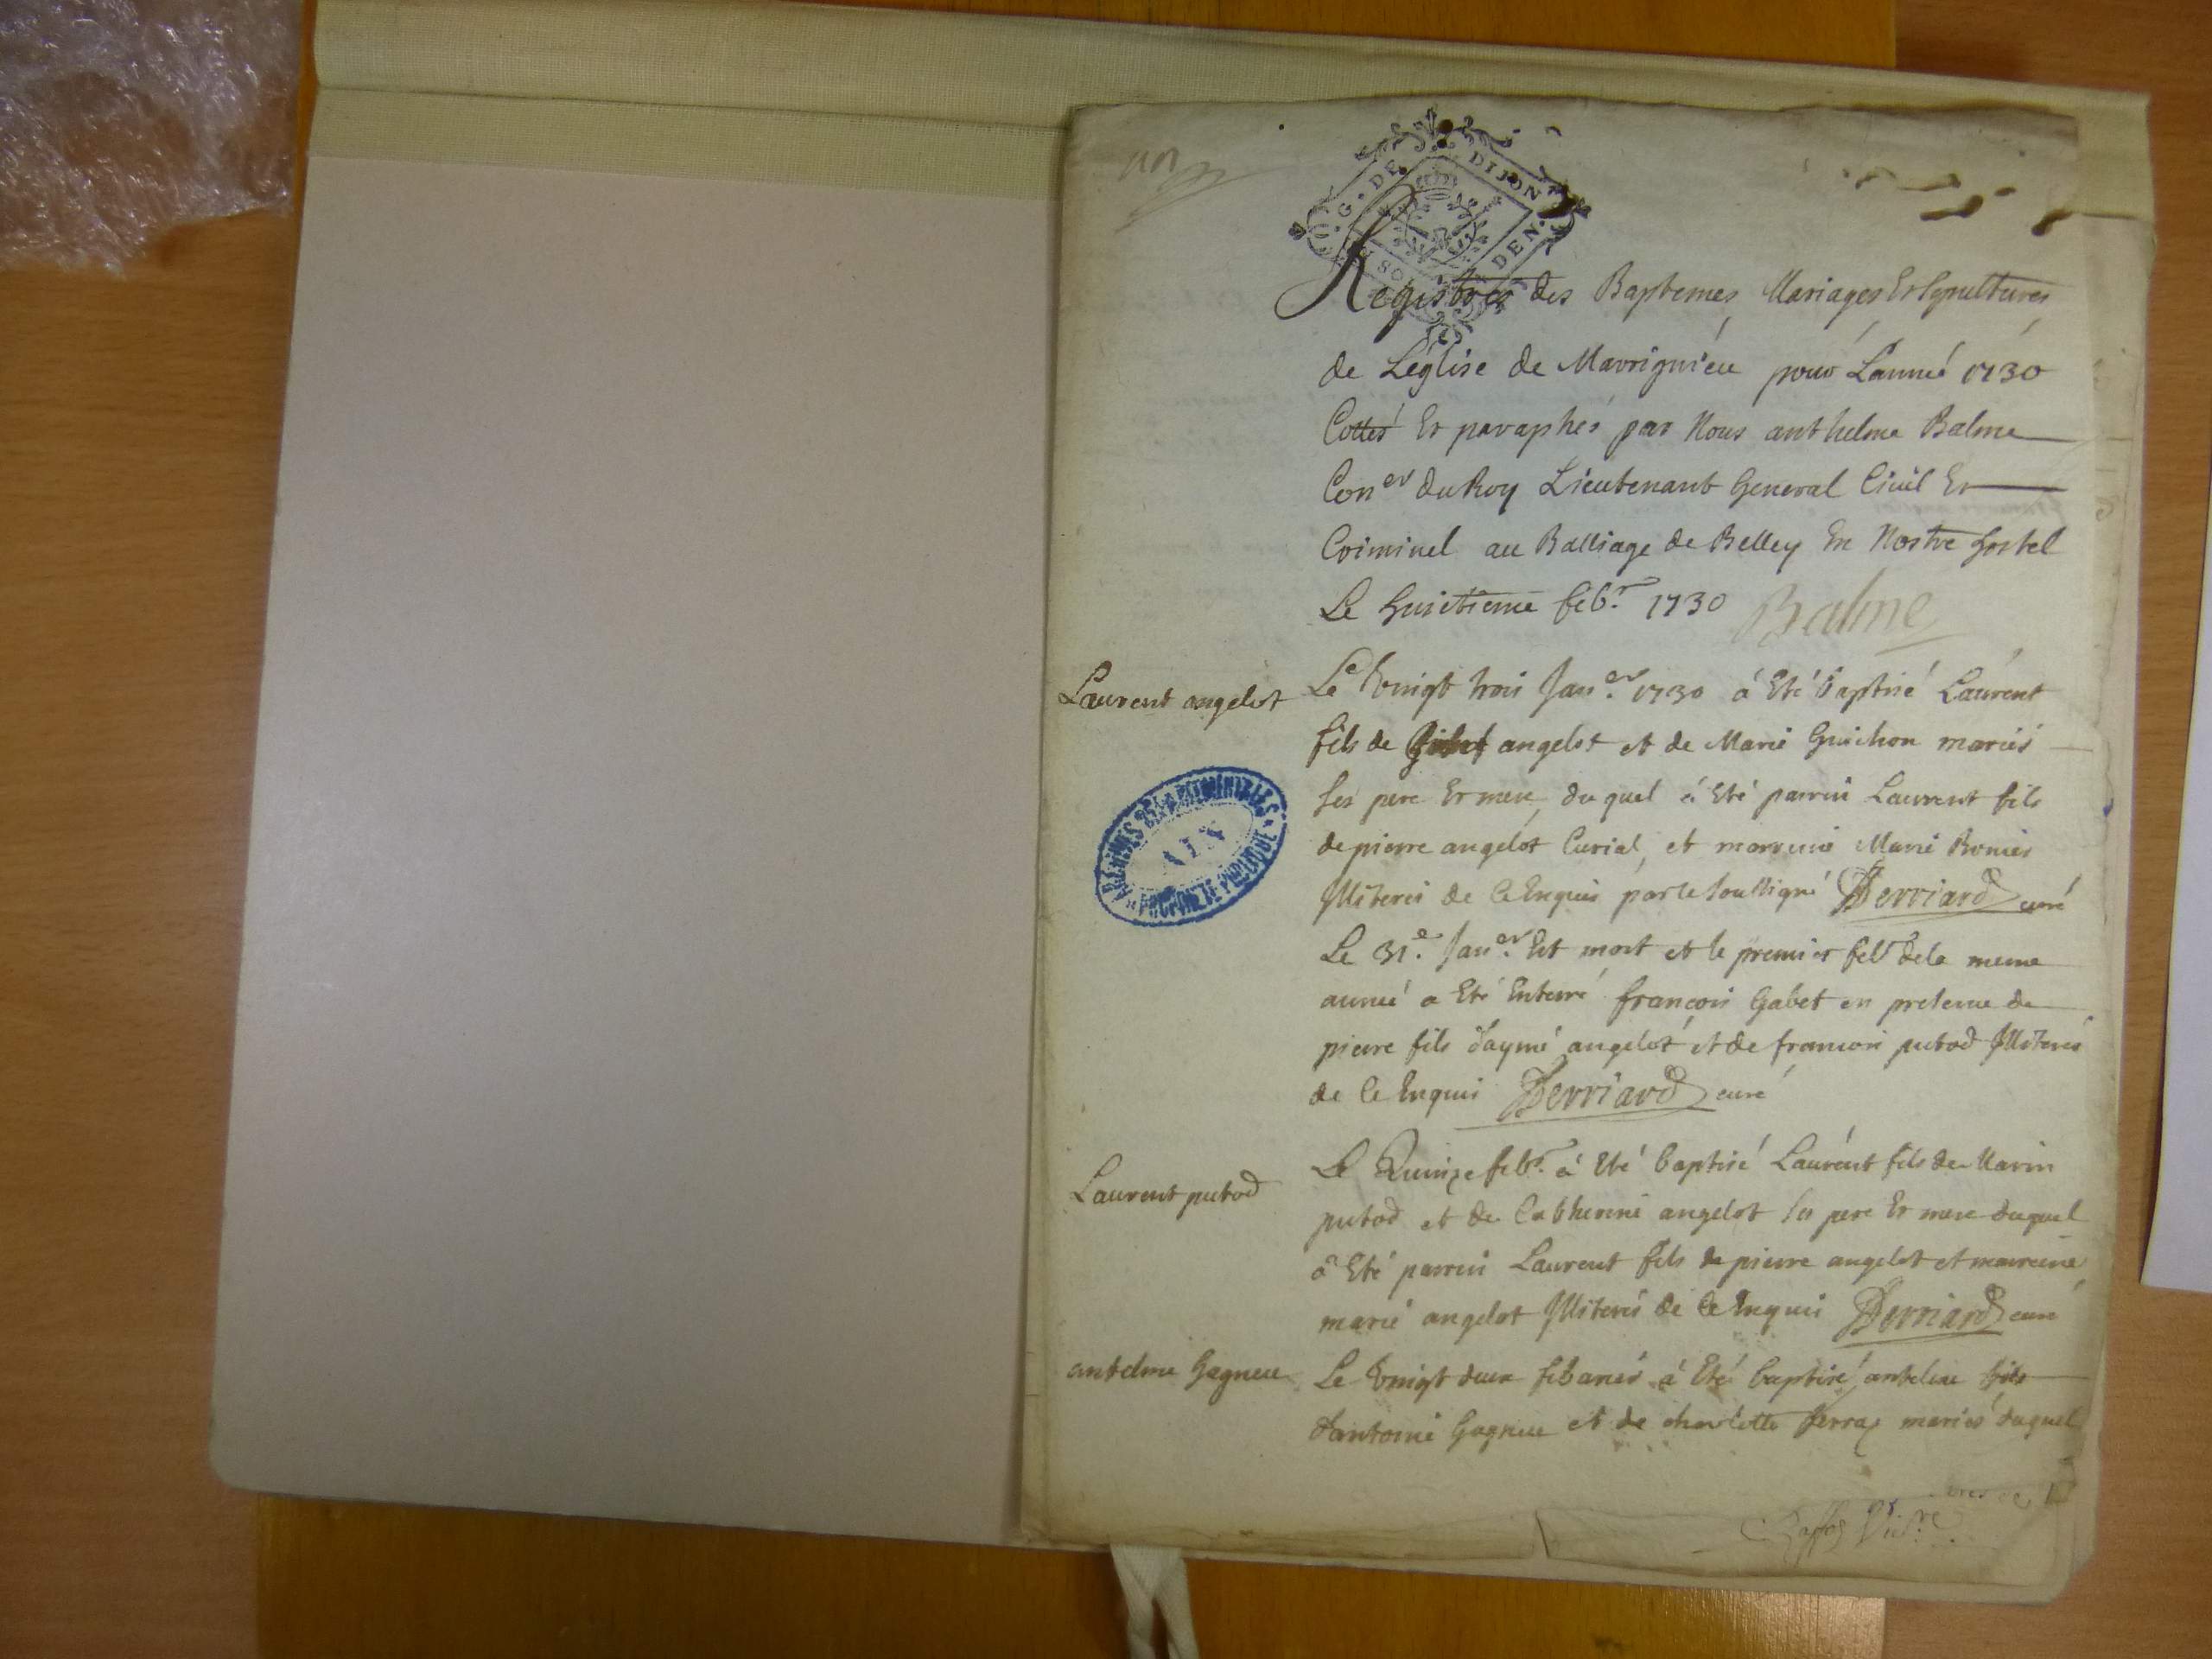 un
G. DE DIJON
DEN.
Registres des Baptemes, Mariages Et sepultures
de L'eglise de Mavrignieu pour L'année 1730
Cottés Et paraphés par Nous anthelme Balme
Con.er du Roy Lieutenant General Civil Et
Criminel au Balliage de Belley En Nostre hostel
Le huictieme feb.r 1730 Balme
Laurent angelot
Le vingt trois Jan.er 1730 á Eté baptisé Laurent
fils de angelot et de Marie Guichon mariés
ses pere Et mere, du quel á Eté parrin Laurent fils
de pierre angelot Curial, et marreine Marie Bonier
Illiterés de Ce Enquis par le soussigné Derriard curé
ARCHIVES DÉPARTEMENTALES
AIN
PROPRIÉTÉ PUBLIQUE
Le 31.e Jan.er Est mort et le premier feb.r de la meme
année a Eté Enterré françois Gabet en presence de
pierre fils d'aymé angelot et de francois putod Illiterés
de Ce Enquis Derriard curé
Laurent putod
Le Quinze feb.r á Eté baptisé Laurent fils de Marin
putod et de Catherine angelot ses pere Et mere duquel
á Eté parrin Laurent fils de pierre angelot et marreine
marie angelot Illiterés de Ce Enquis Derriard curé
antelme Gagneu
Le vingt deux febvrier á Eté baptisé antelme fils
d'antoine Gagneu et de charlotte Perraz mariés duquel